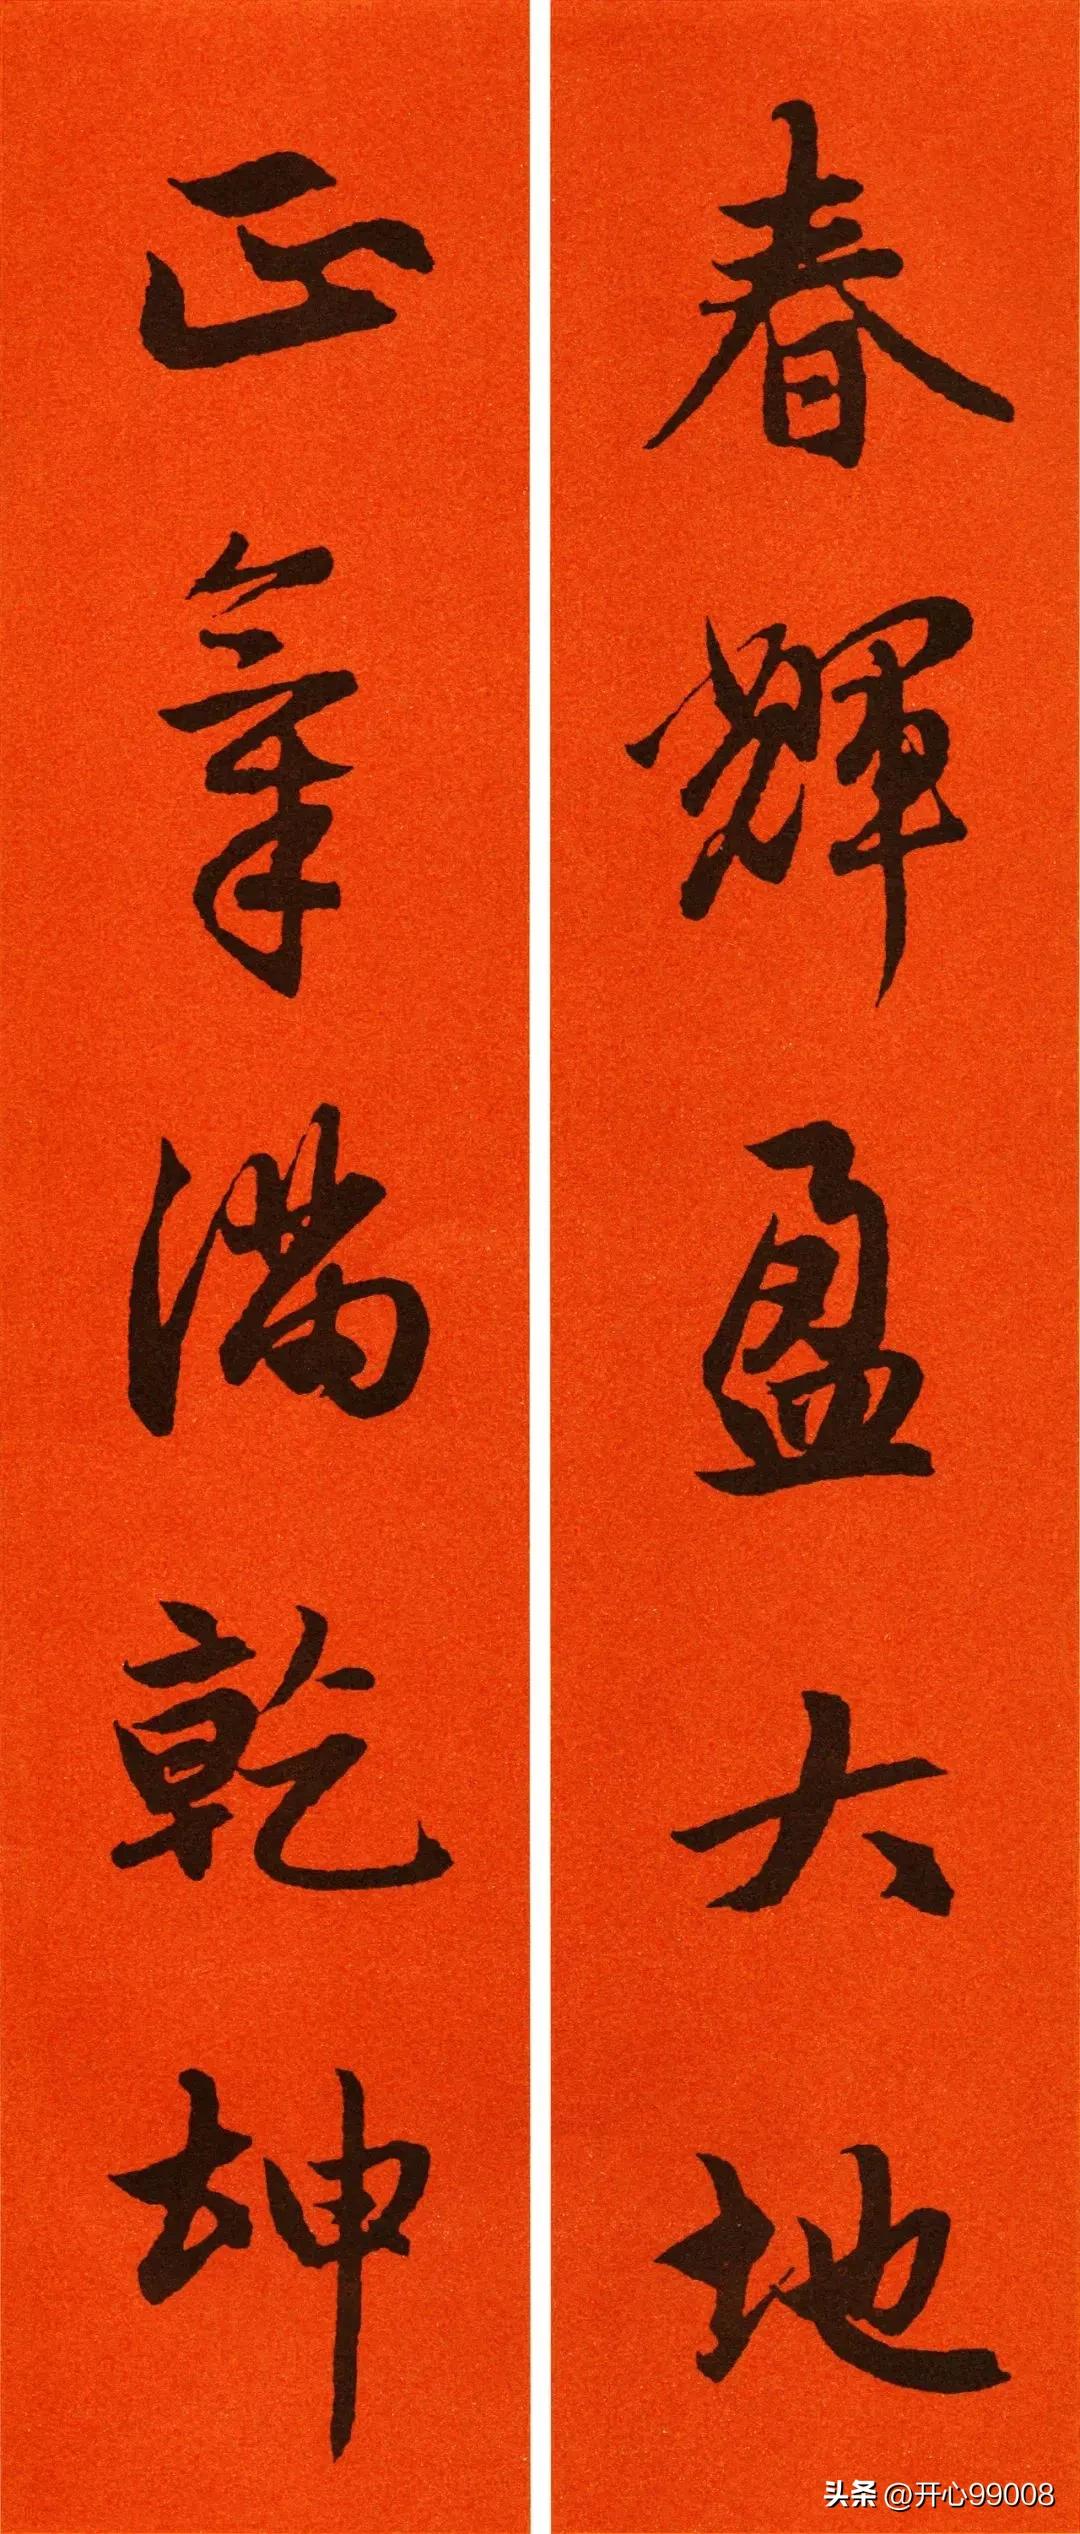 春輝盈大地
正氣滿乾坤
头条 @开心99008